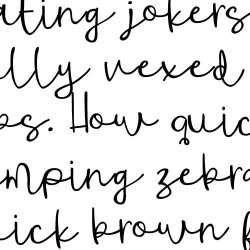 ating jokers
lly vexed
ps. How quic
mping zebra
ick brown f